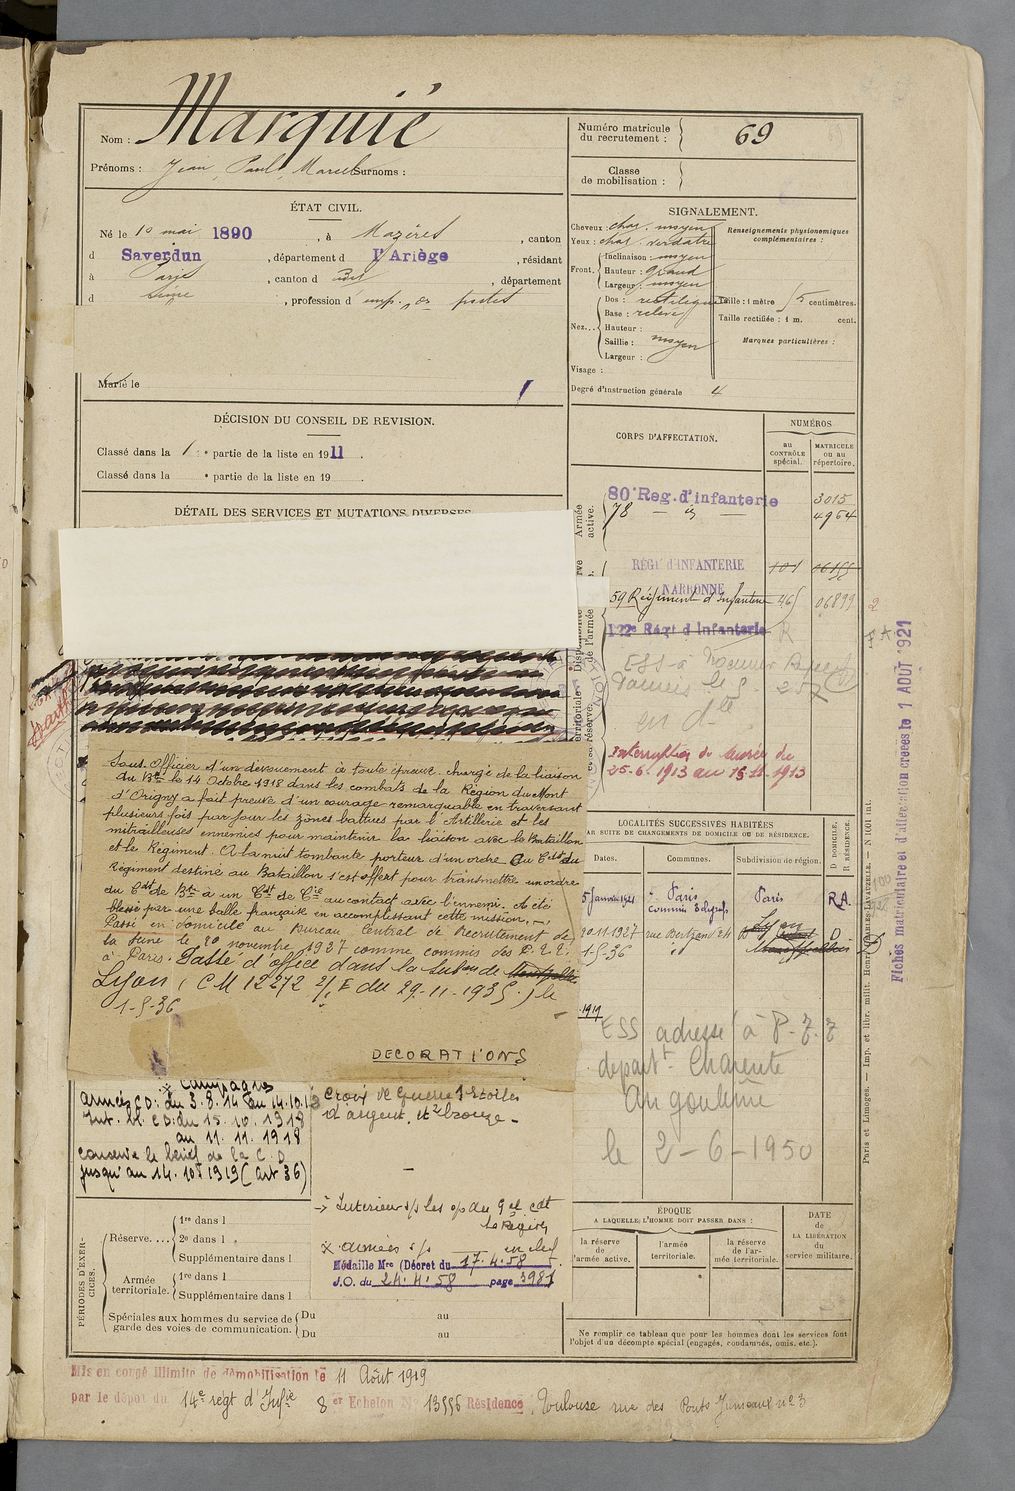 Nom : Marquié
Prénoms : Jean, Paul, Marcel Surnoms :
Numéro matricule du recrutement : 69
Classe de mobilisation :
ÉTAT CIVIL.
Né le 10 mai 1890, à Mazères, canton
d Saverdun, département d l'Ariège, résidant
à Paris, canton d, département
d Seine, profession d emp. des postes
Marié le
SIGNALEMENT.
Cheveux : chat. moyen
Yeux : chat. verdatre
Front. Inclinaison : moyen
Hauteur : grand
Largeur : moyen
Nez... Dos : rectiligne
Base : relevé
Hauteur :
Saillie : moyen
Largeur :
Visage :
Renseignements physionomiques complémentaires :
Taille : 1 mètre centimètres.
Taille rectifiée : 1 m. cent.
Marques particulières :
Degré d'instruction générale 4
DÉCISION DU CONSEIL DE REVISION.
Classé dans la 1 re partie de la liste en 1911.
Classé dans la e partie de la liste en 19 .
DÉTAIL DES SERVICES ET MUTATIONS DIVERSES
CORPS D'AFFECTATION.
NUMÉROS
au CONTRÔLE spécial.
MATRICULE ou au répertoire.
Armée active.
80e Reg. d'infanterie 3015
78 - id - 4964
RÉGt d'INFANTERIE
NARBONNE
59 Régiment d'Infanterie 46 06899
122e Régt d'Infanterie R
Interruption de service du
25-6-1913 au 15-11-1913
Sous-Officier d'un dévouement à toute épreuve. chargé de la liaison
du Bon le 14 Octobre 1918 dans les combats de la Région du Mont
d'Origny a fait preuve d'un courage remarquable en traversant
plusieurs fois par jour les zônes battues par l'Artillerie et les
mitrailleuses ennemies pour maintenir la liaison avec le Bataillon
et le Régiment. A la nuit tombante porteur d'un ordre du Cdt du
Régiment destiné au Bataillon s'est offert pour transmettre un ordre
du Cdt de Bon à un Cdt de Cie au contact avec l'ennemi. A été
blessé par une balle française en accomplissant cette mission.
Passé en domicile au Bureau Central de Recrutement de
la Seine le 20 novembre 1927 comme commis des P.T.T.
à Paris. Passé d'office dans la Subon de Montpellier
Lyon (CM 12272 2/I E du 29-11-1935.) le
1-5-36
DECORATIONS
LOCALITÉS SUCCESSIVES HABITÉES
PAR SUITE DE CHANGEMENTS DE DOMICILE OU DE RÉSIDENCE.
Dates. Communes. Subdivision de région.
D DOMICILE, R RÉSIDENCE.
5 Janvier 1921 Paris Paris R.A.
20.11.1927 rue Bertzen 24 D
1-5-36 id
ESS adresse à P.T.T
départt Charente
Angoulême
le 2-6-1950
* Campagnes
Armées C D : du 3.8.14 au 14.10.18
Int. bl. C D : du 15.10.1918
au 11.11.1918
conserve le bénéf de la C.D
jusqu'au 14.10bre 1919 (art 36)
Croix de Guerre 3 Etoiles
1 d'argent, et 2 bronze.
-> Interieur s/s les op du Gal cdt
la Région
* armées s/s en chef
Médaille Mre (Décret du 17.4.58
J.O. du 24.4.58 page 3981
PÉRIODES D'EXERCICES.
Réserve..... 1re dans l
2e dans l
Supplémentaire dans l
Armée territoriale. 1re dans l
Supplémentaire dans l
Spéciales aux hommes du service de garde des voies de communication. Du au
Du au
ÉPOQUE
A LAQUELLE L'HOMME DOIT PASSER DANS :
la réserve de l'armée active.
l'armée territoriale.
la réserve de l'armée territoriale.
DATE de LA LIBÉRATION du service militaire.
Ne remplir ce tableau que pour les hommes dont les services font
l'objet d'un décompte spécial (engagés, condamnés, omis, etc.).
Mis en congé illimité de démobilisation le 11 Août 1919
par le dépôt du 14e régt d'Infie 8 er Echelon No 13556 Résidence, Toulouse rue des Ponts Jumeaux no 3
Fiches matriculaire et d'affectation créées le 1 AOUT 1921
Paris et Limoges. — Imp. et libr. milit. Henri CHARLES-LAVAUZELLE. — N 1001 int.